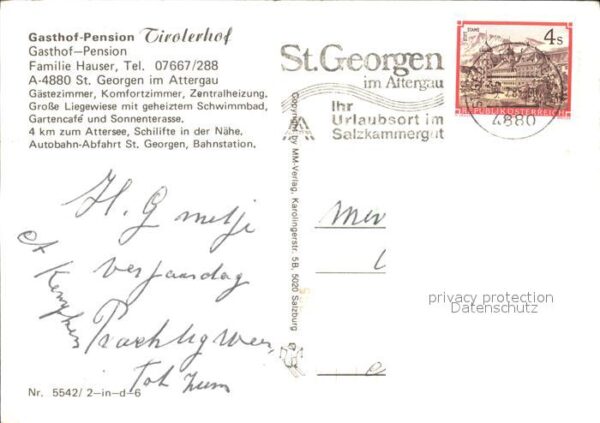 Gasthof-Pension Tirolerhof
Gasthof—Pension
Familie Hauser, Tel. 07667/288
A-4880 St. Georgen im Attergau
Gästezimmer, Komfortzimmer, Zentralheizung,
Große Liegewiese mit geheiztem Schwimmbad,
Gartencafé und Sonnenterasse.
4 km zum Attersee, Schilifte in der Nähe.
Autobahn-Abfahrt St. Georgen, Bahnstation.
H. G metje
verjaardag
Prachtig weer
Tot
Nr. 5542/ 2—in—d—6
Copyright by MM-Verlag, Karolingerstr. 5B, 5020 Salzburg
St. Georgen
im Attergau
Ihr
Urlaubsort im
Salzkammergut
STIFT STAMS
4 S
REPUBLIK ÖSTERREICH
4880
Mev
privacy protection
Datenschutz